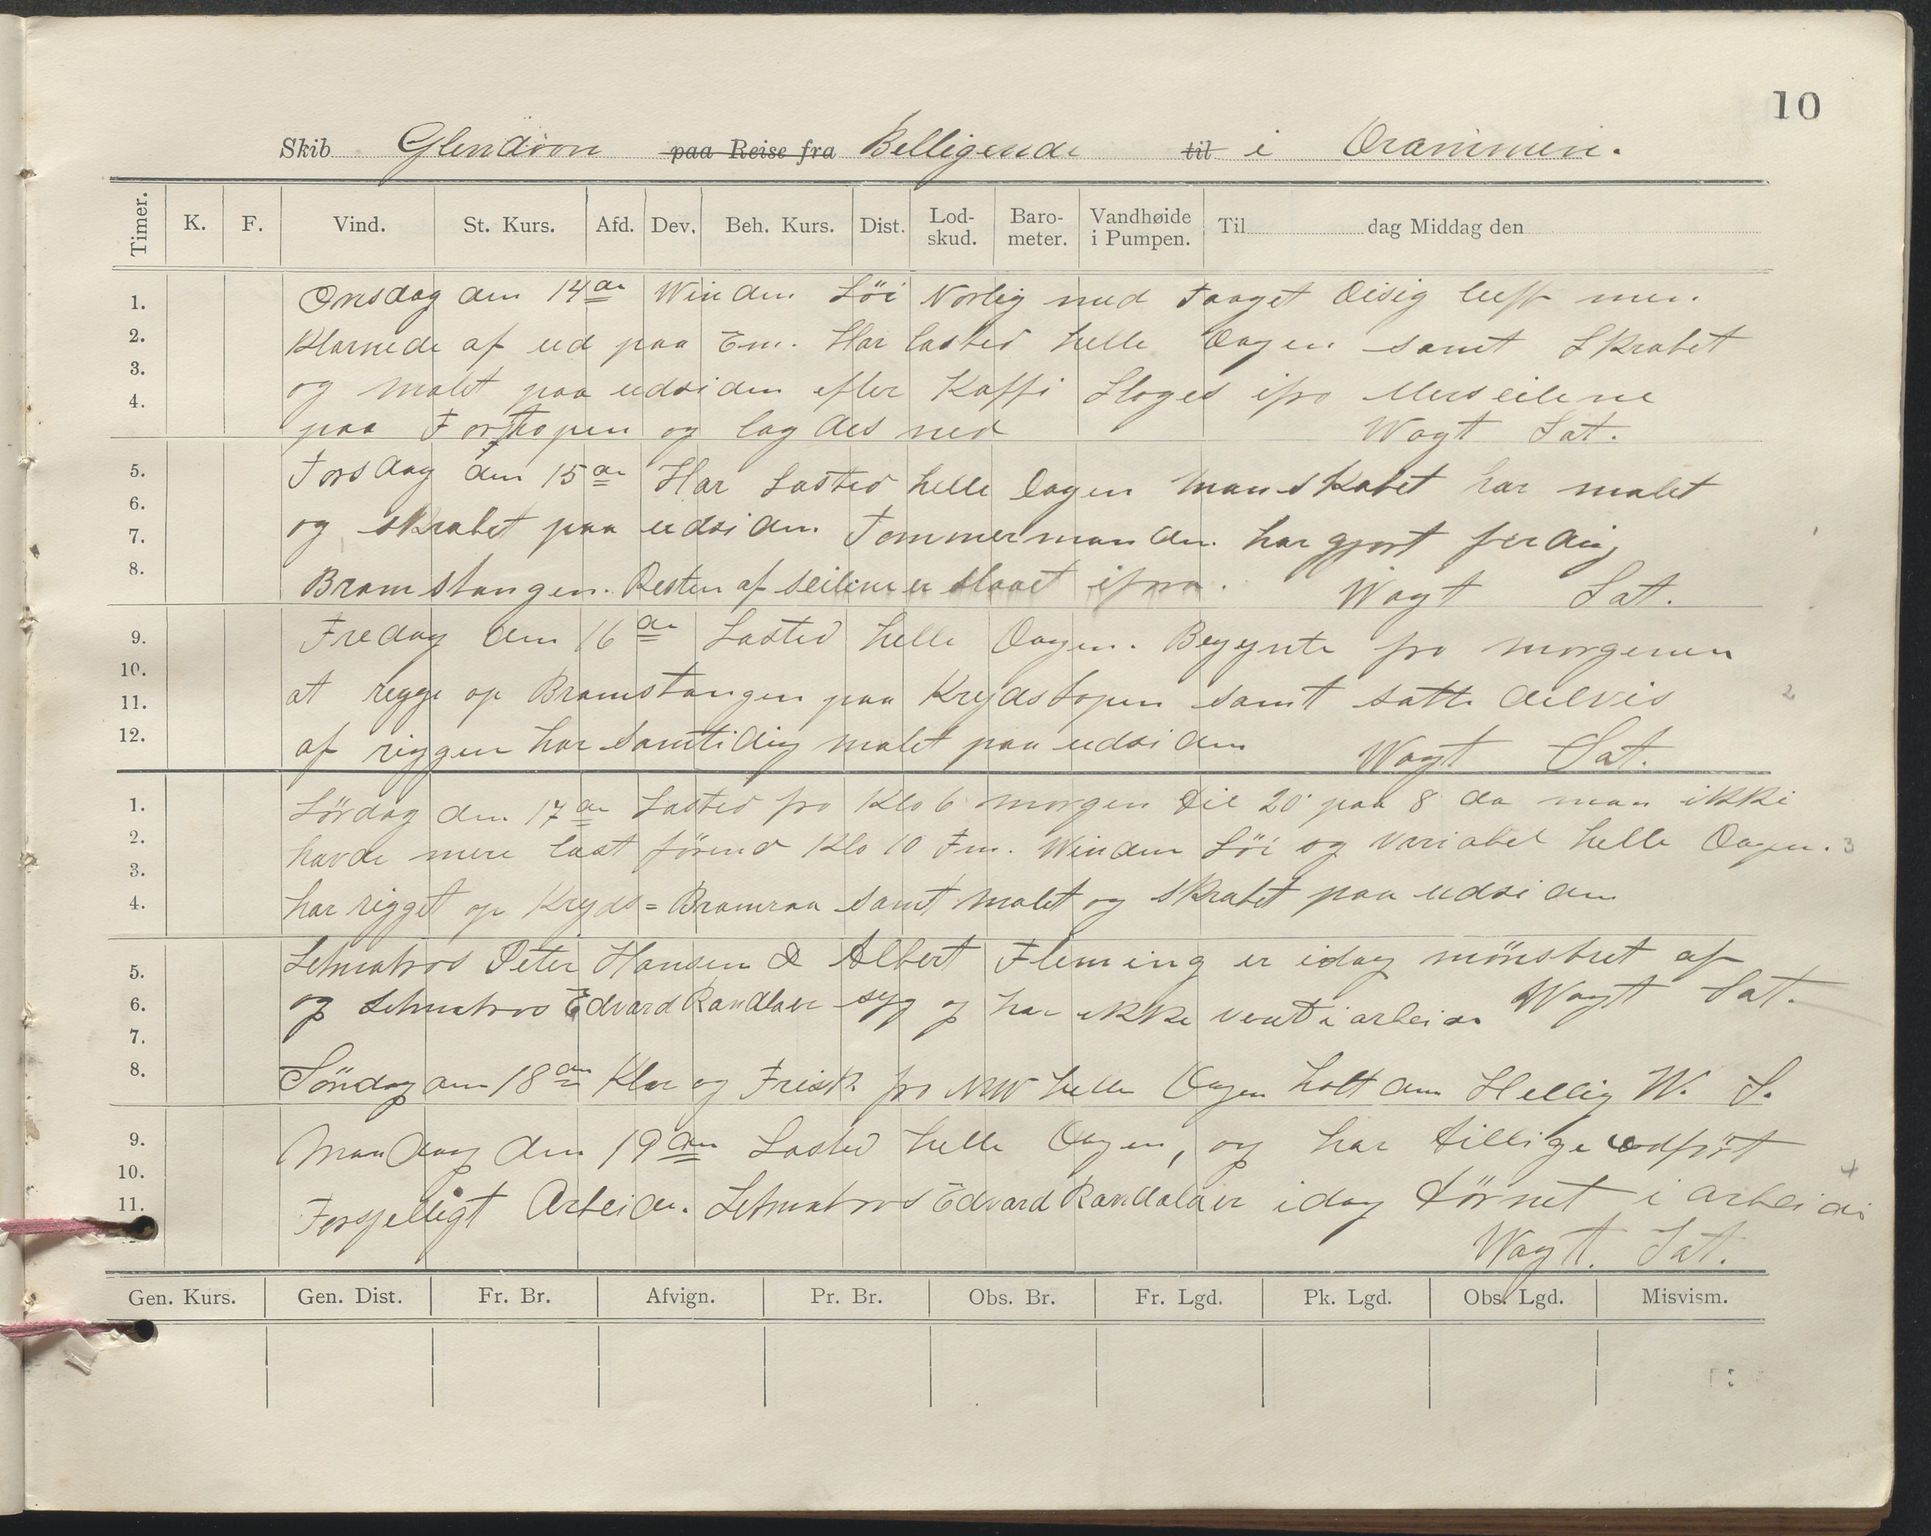 10
Skib Glendoon paa Reise fra Belligende til i Drammen.
Timer. K. F. Vind. St. Kurs. Afd. Dev. Beh. Kurs. Dist. Lod-skud. Baro-meter. Vandhøide i Pumpen. Til dag Middag den
1. Onsdag den 14de Winden Löi Norlig med Taaget Disig luft men
2. Klarnede af ud paa Em. Har lasted helle Dagen samt Skrabet
3. og malet paa udsiden efter Kaffi Sloges ifra Merseilene
4. paa Fortopen og lagdes ned Wagt Sat.
5. Torsdag den 15de Har Lasted helle Dagen Manskabet har malet
6. og skrabet paa udsiden Tommermanden har gjort ferdig
7. Bramstangen. Resten af seilene er slaaet ifra. Wagt Sat.
8.
9. Fredag den 16de Lasted helle Dagen. Begynte fra morgenen
10. at regge op Bramstangen paa Krydstopen samt satte delvis
11. af riggen har samtidig malet paa udsiden Wagt Sat.
12.
1. Lördag den 17de Lasted fra Klo 6 morgen til 20 paa 8 da man ikke
2. havde mere last förend Klo 10 Fm. Winden Löi og variabel helle Dagen. 3
3. har rigget op Kryds=Bramraa samt malet og skrabet paa udsiden
4.
5. Letmatros Peter Hansen & Albert Fleming er idag mönstret af
6. og Letmatros Edvard Randla er syg og har ikke vert i arbeide Wagt Sat.
7.
8. Söndag den 18de Klar og Frisk fra NW helle Dagen holt den Hellig W. S.
9. Mandag den 19de Lasted helle Dagen, og har tillige udfört
10. Forsjelligt Arbeide. Letmatros Edvard Randala er idag törnet i arbeide
11. Wagt. Sat.
Gen. Kurs. Gen. Dist. Fr. Br. Afvign. Pr. Br. Obs. Br. Fr. Lgd. Pk. Lgd. Obs. Lgd. Misvism.